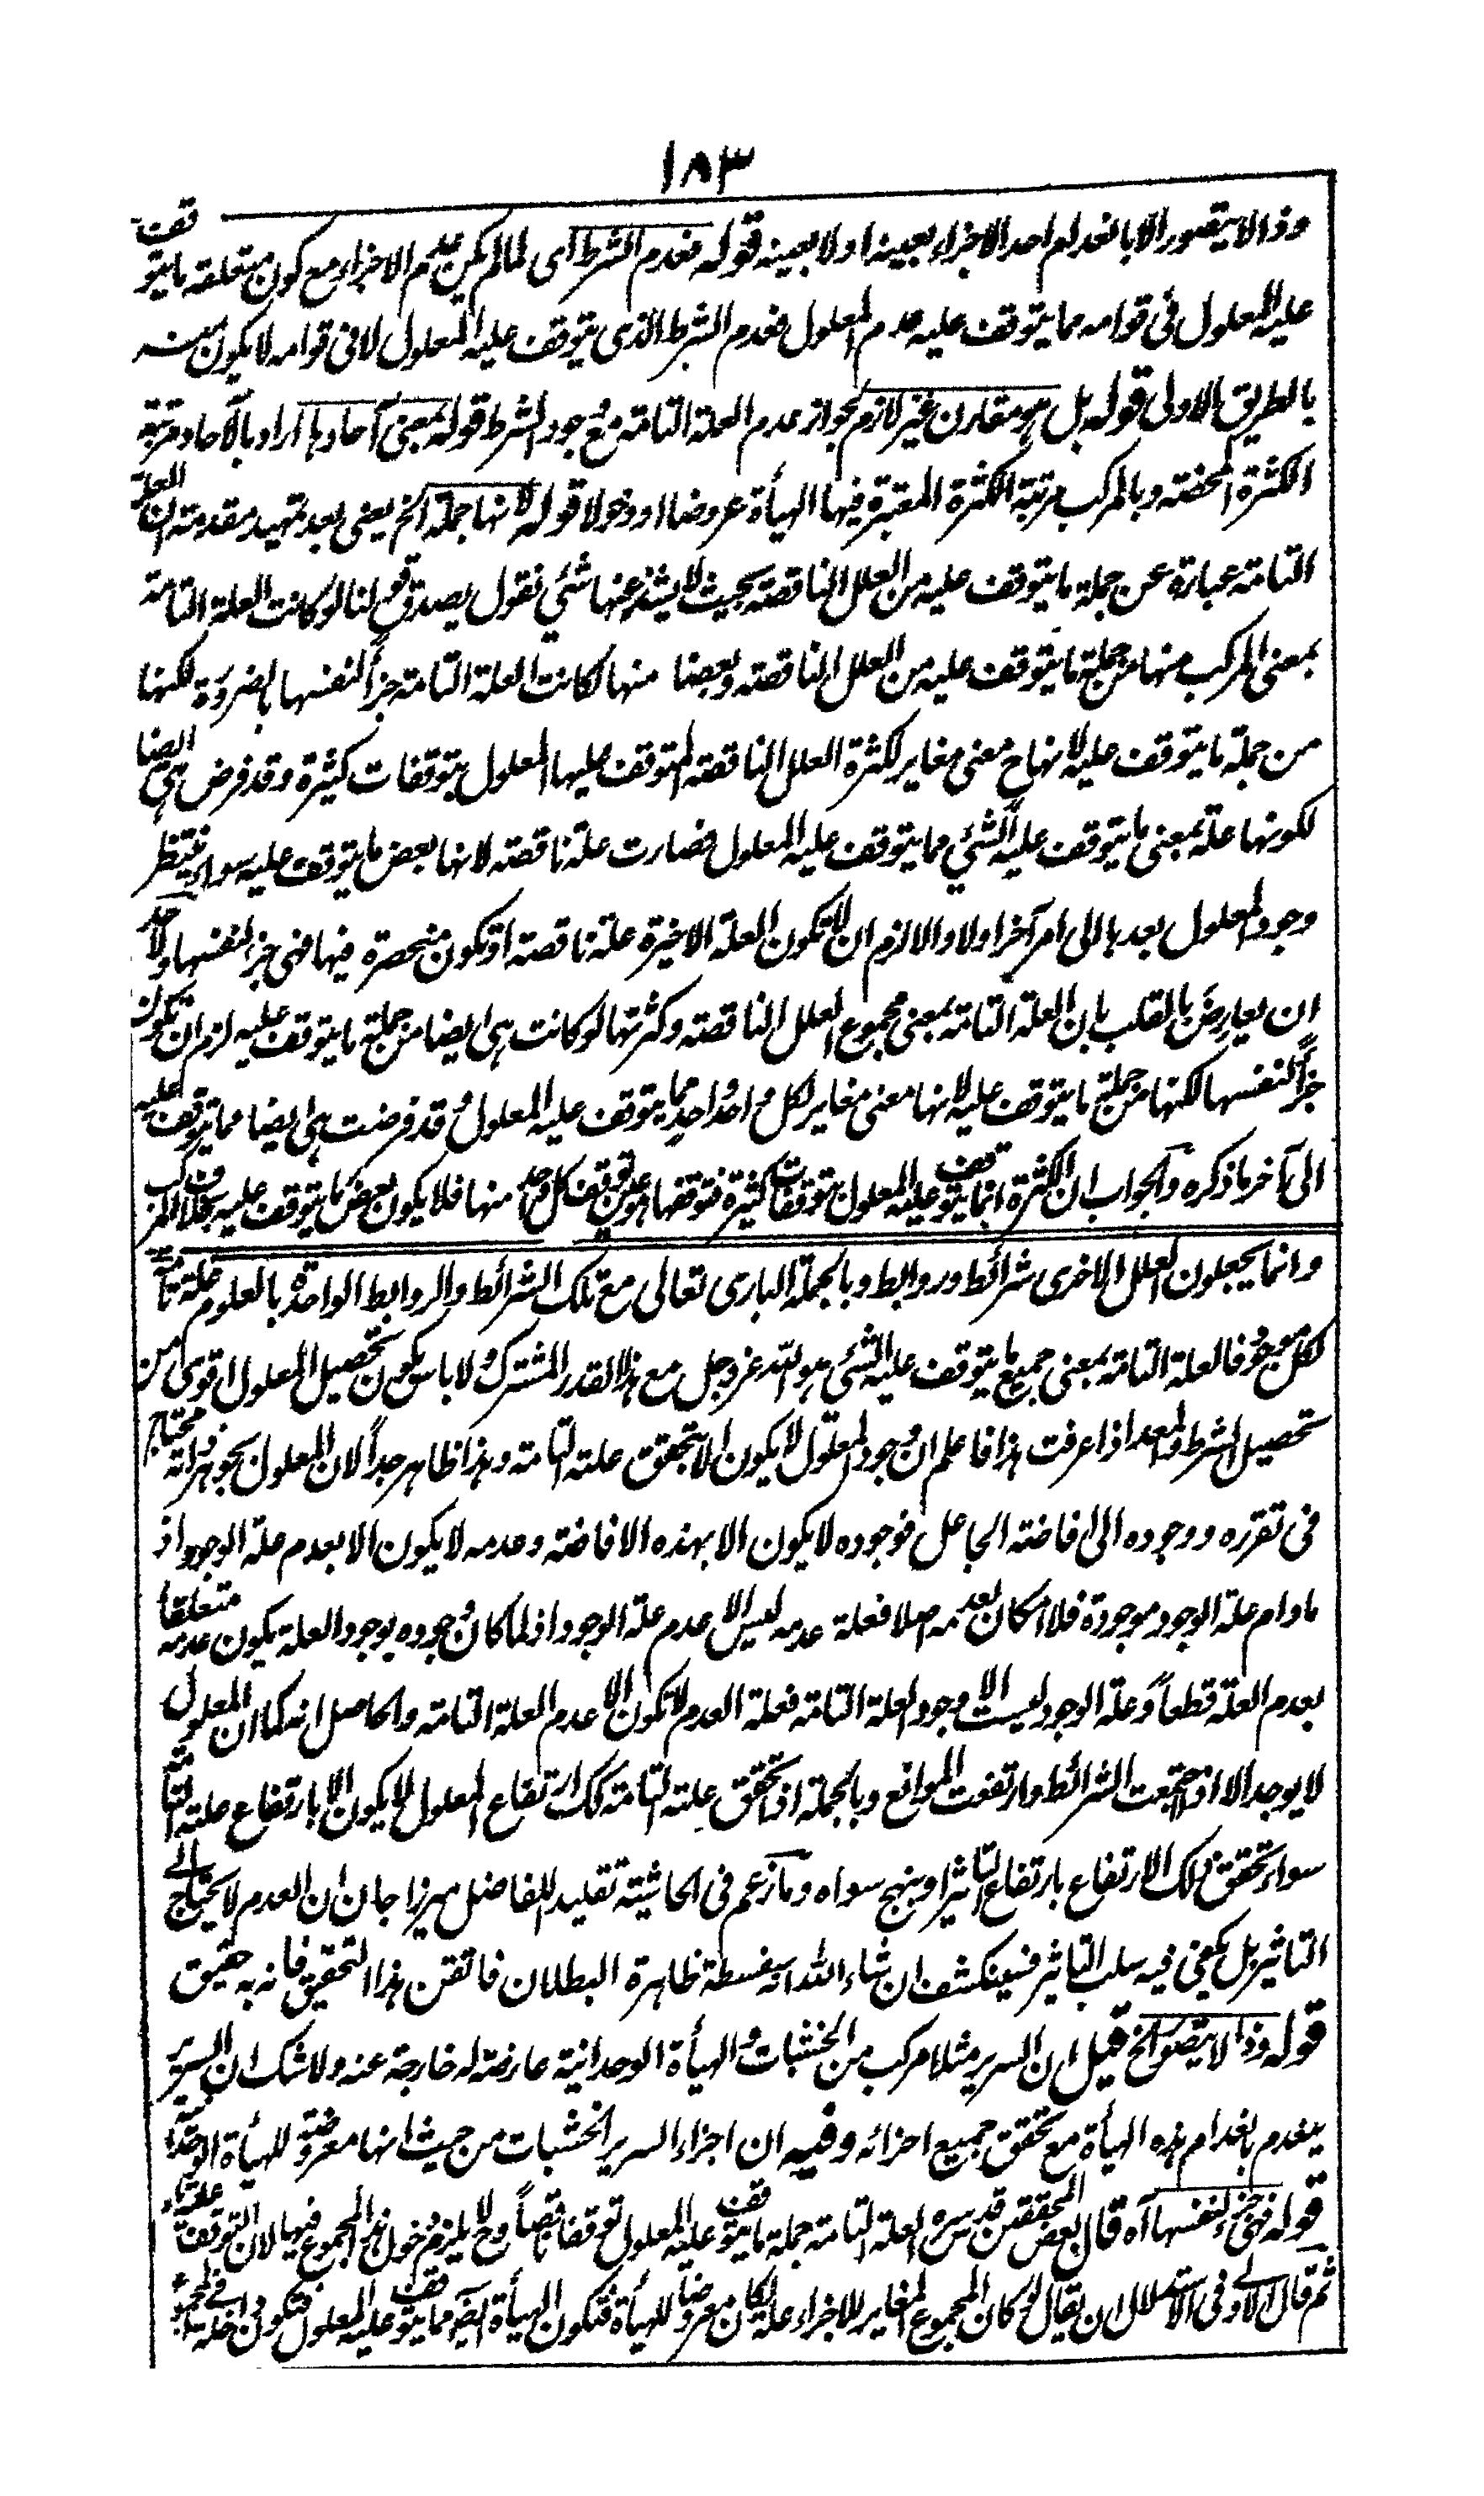 ١٨٣
وذا لا يتصور الا بانعدام احد الاجزاء بعينه اولا بعينه قوله فعدم الشرط اى لما لم يكن عدم الاجزاء مع كون متعلقه ما يتوقف
عليه المعلول فى قوامه مما يتوقف عليه عدم المعلول فعدم الشرط الذى يتوقف عليه المعلول لا فى قوامه لا يكون منه
بالطريق الاولى قوله بل هو مقارن غير لازم لجواز عدم العلة التامة مع وجود الشرط قوله بمعنى آحادها اراد بالآحاد مرتبة
الكثرة المحضة وبالمركب مرتبة الكثرة المعتبرة فيها الهيأة عروضا او دخولا قوله لانها جملة الخ يعنى بعد تمهيد مقدمة ان العلة
التامة عبارة عن جملة ما يتوقف عليه من العلل الناقصة بحيث لا يشذ عنها شئ نقول يصدق قولنا لو كانت العلة التامة
بمعنى المركب منها من جملة ما يتوقف عليه من العلل الناقصة وبعضا منها لكانت العلة التامة جزأ لنفسها بالضرورة لكنها
من جملة ما يتوقف عليه لانها ح معنى مغاير لكثرة العلل الناقصة المتوقف عليها المعلول بتوقفات كثيرة وقد فرض هى ايضا
لكونها علة بمعنى ما يتوقف عليه الشئ مما يتوقف عليه المعلول فصارت علة ناقصة لانها بعض ما يتوقف عليه سواء ينتظر
وجود المعلول بعدها الى امر آخر اولا والا لزم ان لا تكون العلة الاخيرة علة ناقصة او تكون منحصرة فيها فهى جزء لنفسها ولاحد
ان يعارض بالقلب بان العلة التامة بمعنى مجموع العلل الناقصة وكثرتها لو كانت هى ايضا من جملة ما يتوقف عليه لزم ان تكون
جزأ لنفسها لكنها من جملة ما يتوقف عليه لانها معنى مغاير لكل واحد واحد مما يتوقف عليه المعلول وقد فرضت هى ايضا مما يتوقف عليه
الى آخر ما ذكره والجواب ان الكثرة انما يتوقف عليه المعلول بتوقفات كثيرة فتوقفها هو عين توقف كل واحد منها فلا يكون بعض ما يتوقف عليه بخلاف المركب
وانما يجعلون العلل الاخرى شرائط وروابط وبالجملة البارى تعالى مع تلك الشرائط والروابط الواحدة بالعلوم علة تامة
لكل موجود فالعلة التامة بمعنى جميع ما يتوقف عليه الشئ هو الله عز وجل مع هذا القدر المشترك ولا باس بكون تحصيل المعلول اقوى من
تحصيل الشرط والمعد اذا عرفت هذا فاعلم ان وجود المعلول لا يكون الا بتحقق علته التامة وهذا ظاهر جداً لان المعلول بجوهر ذاته محتاج
فى تقرره ووجوده الى افاضة الجاعل فوجوده لا يكون الا بهذه الافاضة وعدمه لا يكون الا بعدم علة الوجود اذ
مادام علة الوجود موجودة فلا امكان لعدمه اصلا فعلة عدمه ليس الا عدم علة الوجود اذ لما كان وجوده بوجود العلة يكون عدمه متعلقا
بعدم العلة قطعاً وعلة الوجود ليست الا وجود العلة التامة فعلة العدم لا تكون الا عدم العلة التامة والحاصل انه كما ان المعلول
لا يوجد الا اذا اجتمعت الشرائط وارتفعت الموانع وبالجملة اذا تحقق علته التامة كك ارتفاع المعلول لا يكون الا بارتفاع علته التامة
سواء تحقق ذلك الارتفاع بارتفاع التاثير او بنهج سواه وما زعم فى الحاشية تقليدا للفاضل ميرزا جان ان العدم لا يحتاج الى
التاثير بل يكفى فيه سلب التاثير فسينكشف ان شاء الله انه سفسطة ظاهرة البطلان فاتقن هذا التحقيق فانه به حقيق
قوله وذا لا يتصور الخ قيل ان السرير مثلا مركب من الخشبات والهيأة الوحدانية عارضة له خارجة عنه ولا شك ان السرير
ينعدم بانعدام هذه الهيأة مع تحقق جميع اجزائه وفيه ان اجزاء السرير الخشبات من حيث انها معروضة للهيأة الوحدانية
قوله فهى جزء لنفسها آه قال بعض المحققين قدس سره العلة التامة جملة ما يتوقف عليه المعلول توقفا ناقصاً وح لا يلزم دخول المجموع فيها لان التوقف عليه
ثم قال الاولى فى الاستدلال ان يقال لو كان المجموع المغاير للاجزاء علة لكان معروضا للهيأة فتكون الهيأة ايضا مما يتوقف عليه المعلول فتكون داخلة فى المجموع